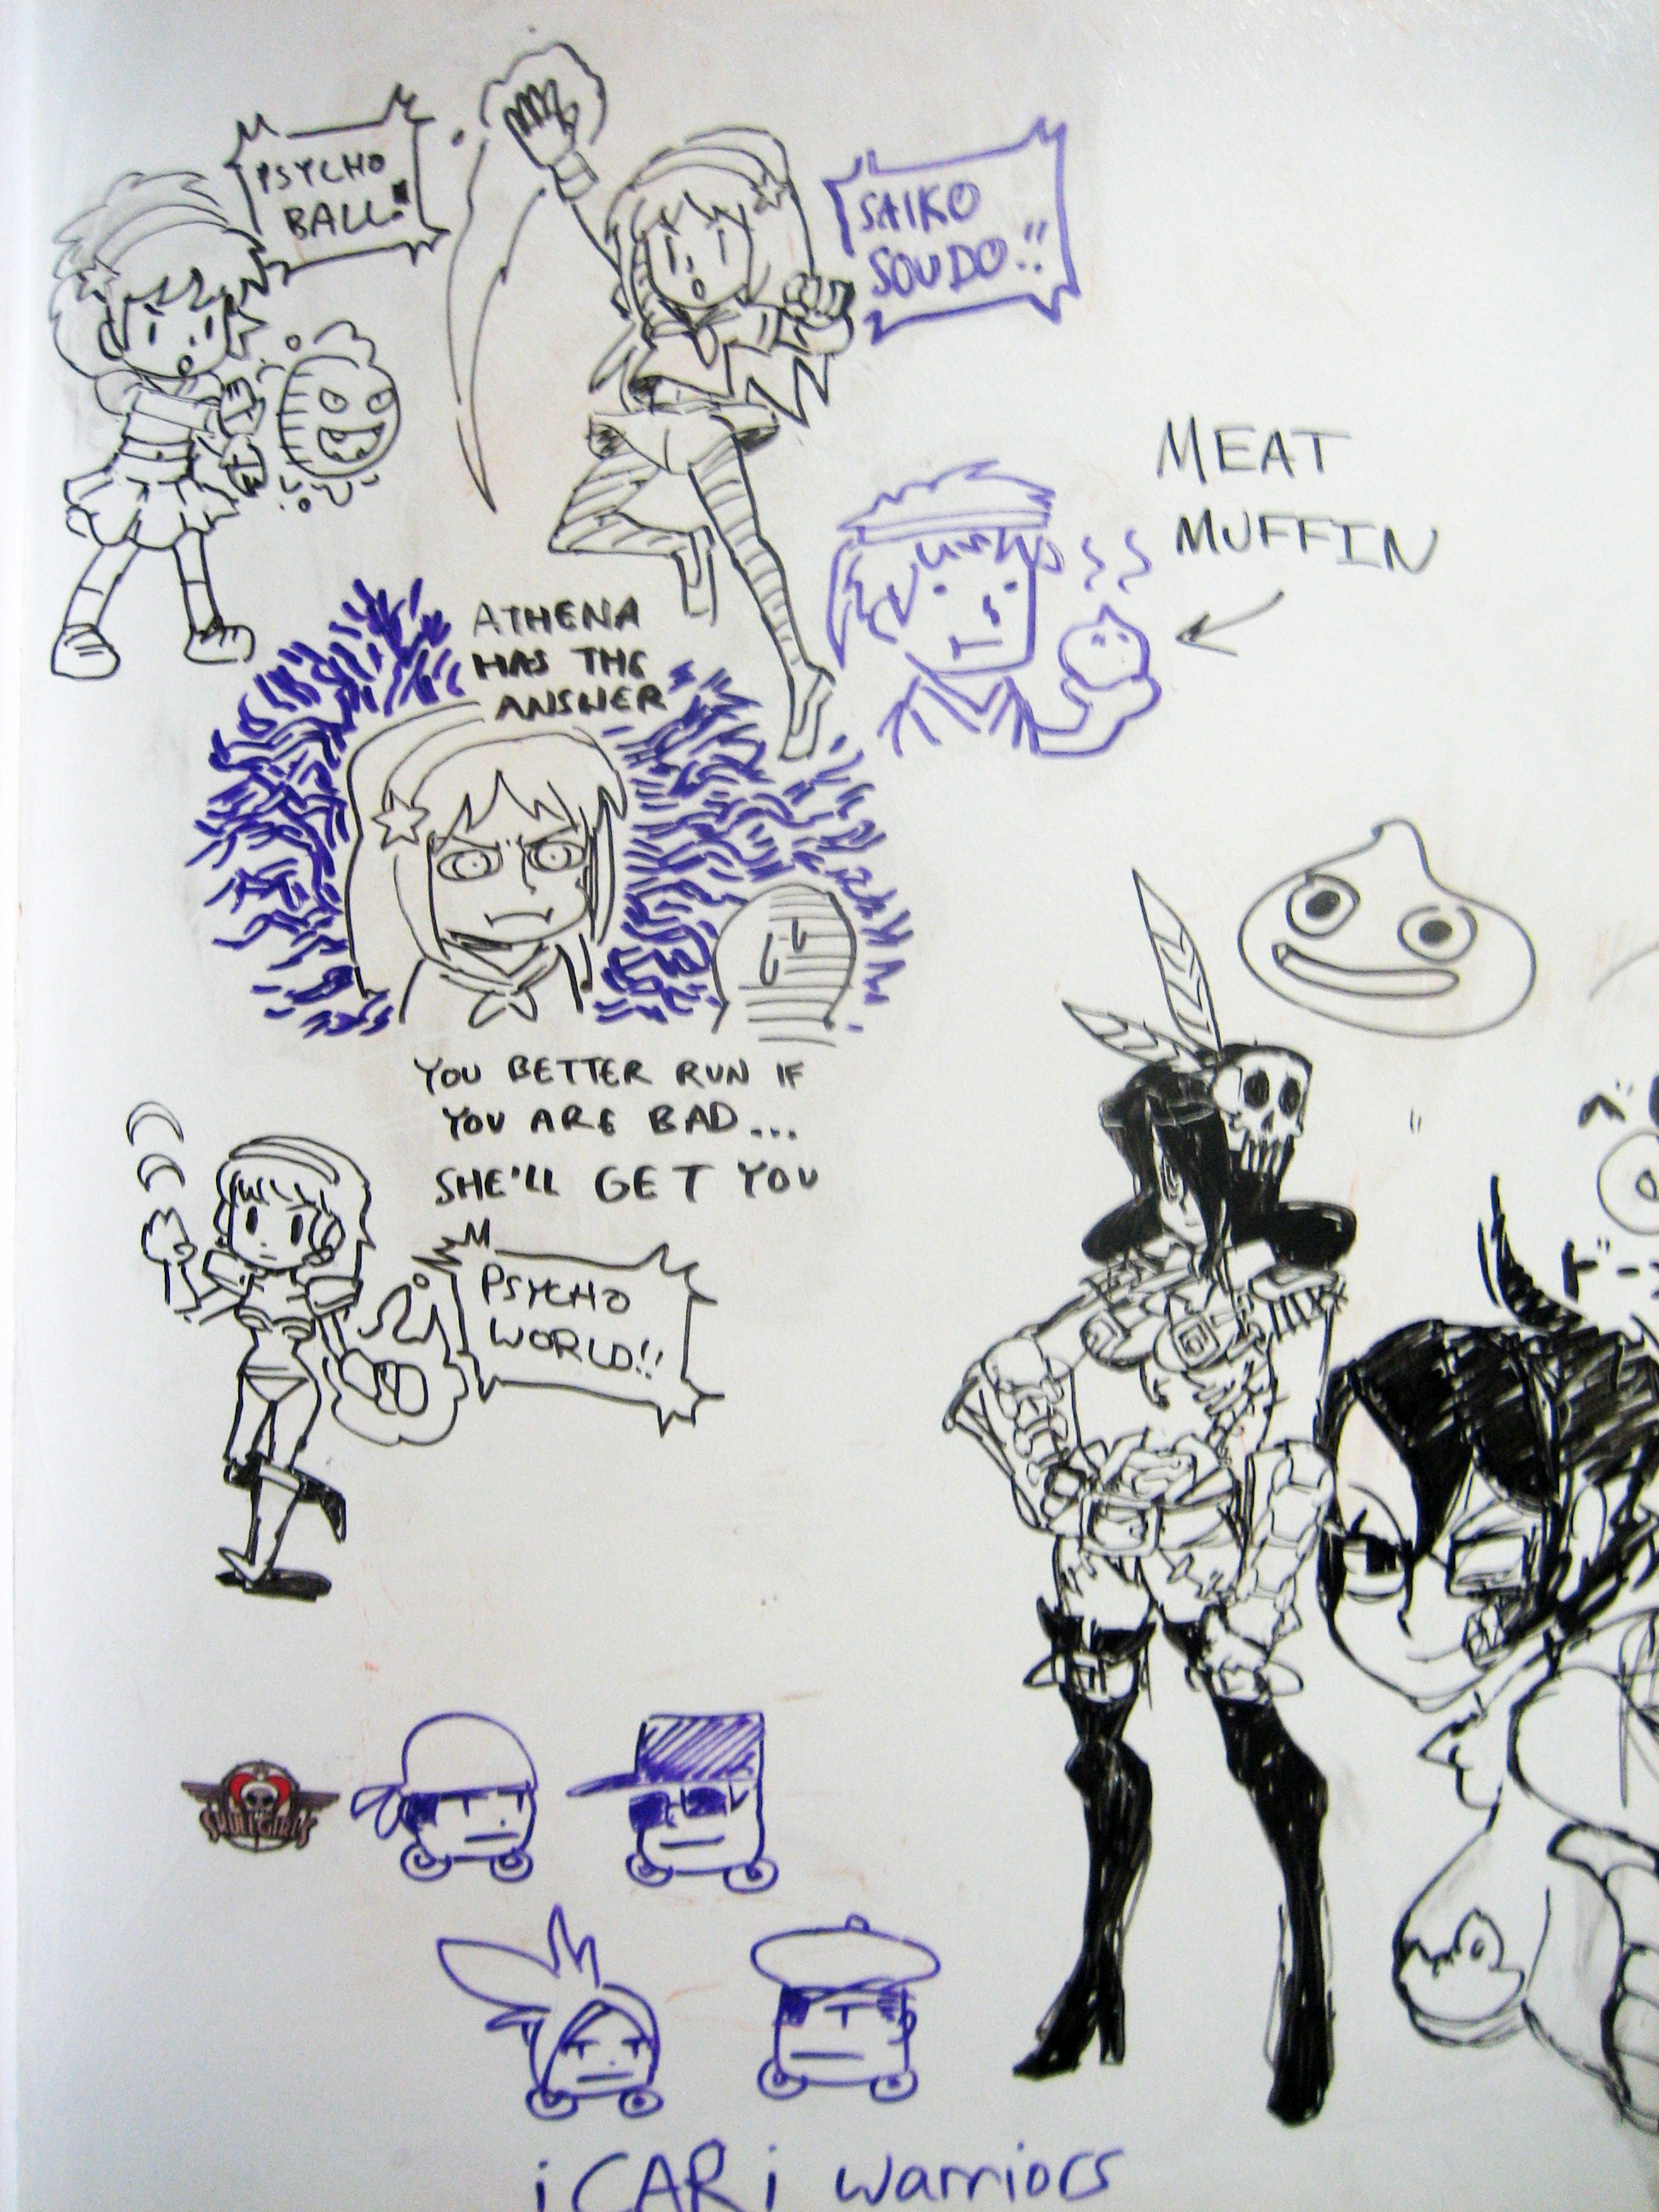 PSYCHO
BALL!!
SAIKO
SOUDO!!
MEAT
MUFFIN
ATHENA
HAS THE
ANSWER
YOU BETTER RUN IF
YOU ARE BAD...
SHE'LL GET YOU
PSYCHO
WORLD!!
SKULLGIRLS
iCARi warriors